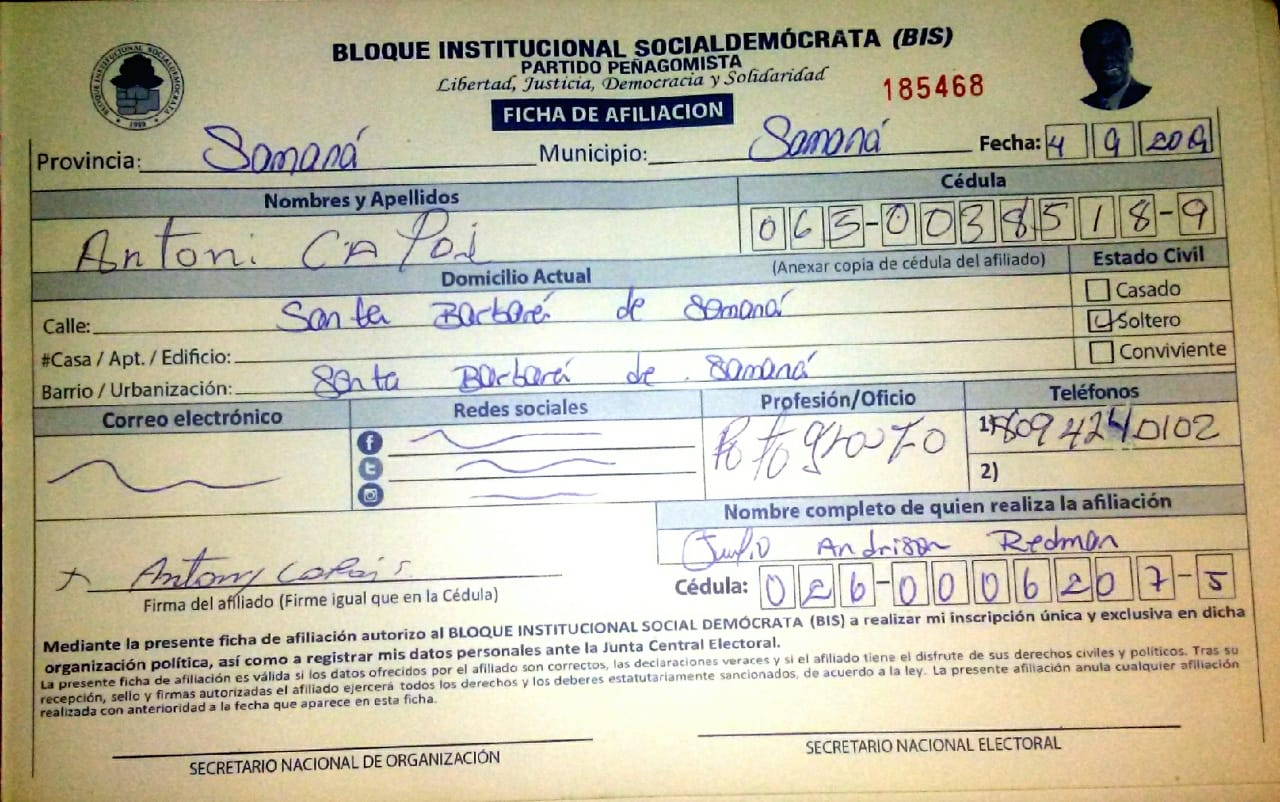 BLOQUE INSTITUCIONAL SOCIALDEMÓCRATA (BIS)
PARTIDO PEÑAGOMISTA
Libertad, Justicia, Democracia y Solidaridad
185468
FICHA DE AFILIACION
Provincia: Samaná Municipio: Samaná Fecha: 4 9 2019
Nombres y Apellidos Cédula
Antoni 065-0038518-9
Domicilio Actual (Anexar copia de cédula del afiliado) Estado Civil
Casado
Calle: Santa Barbará de Samaná Soltero
#Casa / Apt. / Edificio: Conviviente
Barrio / Urbanización: Santa Barbará de Samaná
Correo electrónico Redes sociales Profesión/Oficio Teléfonos
1) 809 424 0102
2)
Nombre completo de quien realiza la afiliación
Julio Andrison Redman
Antony
Cédula: 026-0006207-5
Firma del afiliado (Firme igual que en la Cédula)
Mediante la presente ficha de afiliación autorizo al BLOQUE INSTITUCIONAL SOCIAL DEMÓCRATA (BIS) a realizar mi inscripción única y exclusiva en dicha
organización política, así como a registrar mis datos personales ante la Junta Central Electoral.
La presente ficha de afiliación es válida si los datos ofrecidos por el afiliado son correctos, las declaraciones veraces y si el afiliado tiene el disfrute de sus derechos civiles y políticos. Tras su
recepción, sello y firmas autorizadas el afiliado ejercerá todos los derechos y los deberes estatutariamente sancionados, de acuerdo a la ley. La presente afiliación anula cualquier afiliación
realizada con anterioridad a la fecha que aparece en esta ficha.
SECRETARIO NACIONAL DE ORGANIZACIÓN SECRETARIO NACIONAL ELECTORAL